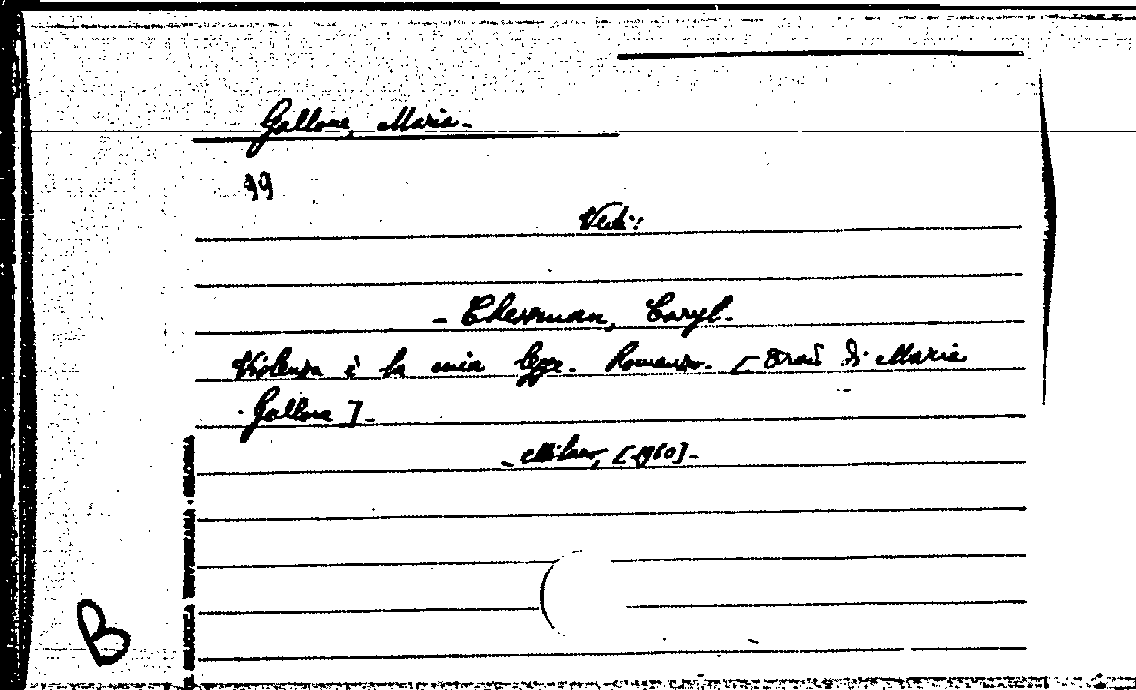 Gallone, Maria.
99
Vedi:
- Chessman, Caryl.
Violenza è la mia legge. Romanzo. [Trad. di Maria
Gallone].
- Milano, [1960] -
BIBLIOTECA UNIVERSITARIA - BOLOGNA
B